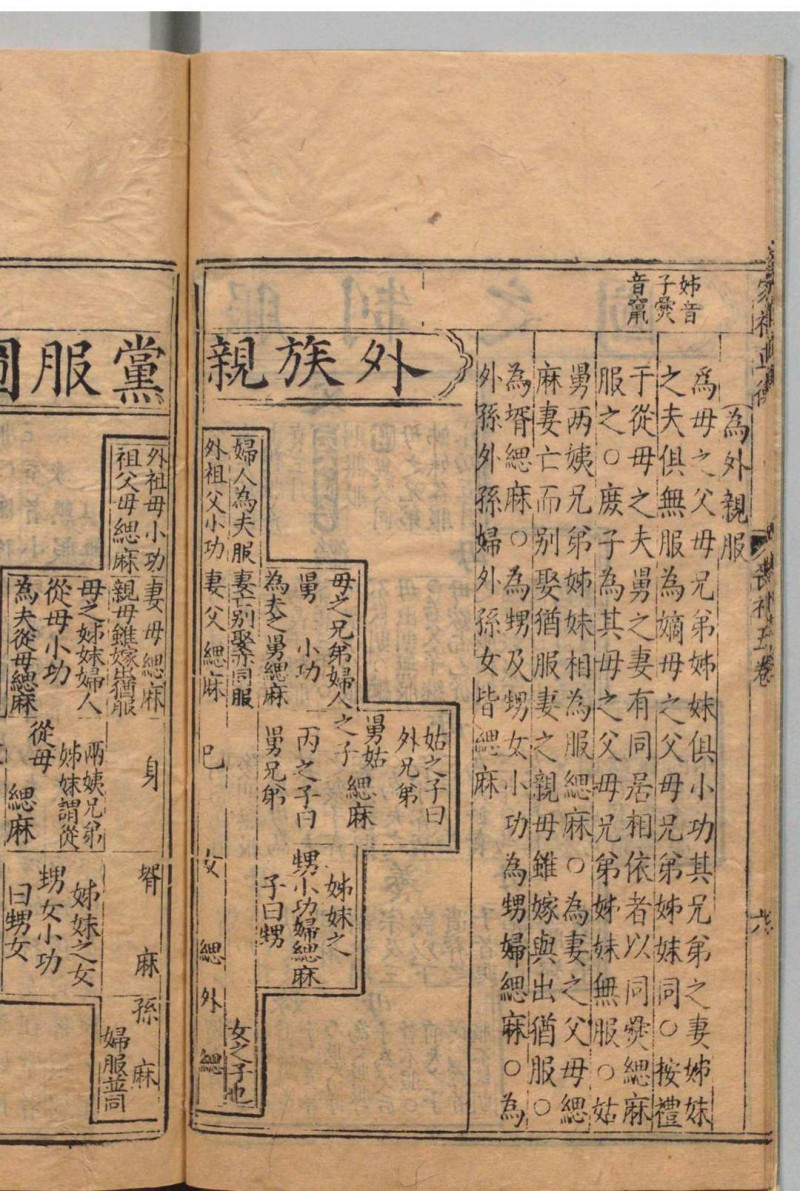 姊音
子爨
音竄
為外親服
為母之父母兄弟姊妹俱小功其兄弟之妻姊妹
之夫俱無服為嫡母之父母兄弟姊妹同○按禮
于從母之夫舅之妻有同居相依者以同爨緦麻
服之○庶子為其母之父母兄弟姊妹無服○姑
舅兩姨兄弟姊妹相為服緦麻○為妻之父母緦
麻妻亡而別娶猶服妻之親母雖嫁與出猶服○
為壻緦麻○為甥及甥女小功為甥婦緦麻○為
外孫外孫婦外孫女皆緦麻
外族親
姑之子曰
外兄弟
舅姑
之子
緦麻
母之兄弟婦人
舅 小功
為夫之舅緦麻
丙之子曰
舅兄弟
姊妹之
甥小功婦緦麻
子曰甥
婦人為夫服
外祖父小功
妻亡別娶亦同服
妻父緦麻
巳
女 緦
外 緦
女之子也
黨服圖
外祖母小功
祖父母緦麻
妻母緦麻
親母雖嫁出猶服
身
壻 麻
孫 麻
婦服並同
母之姊妹婦人
從母小功
為夫從母緦麻
兩姨兄弟
姊妹謂從
從母
緦麻
姊妹之女
甥女小功
曰甥女